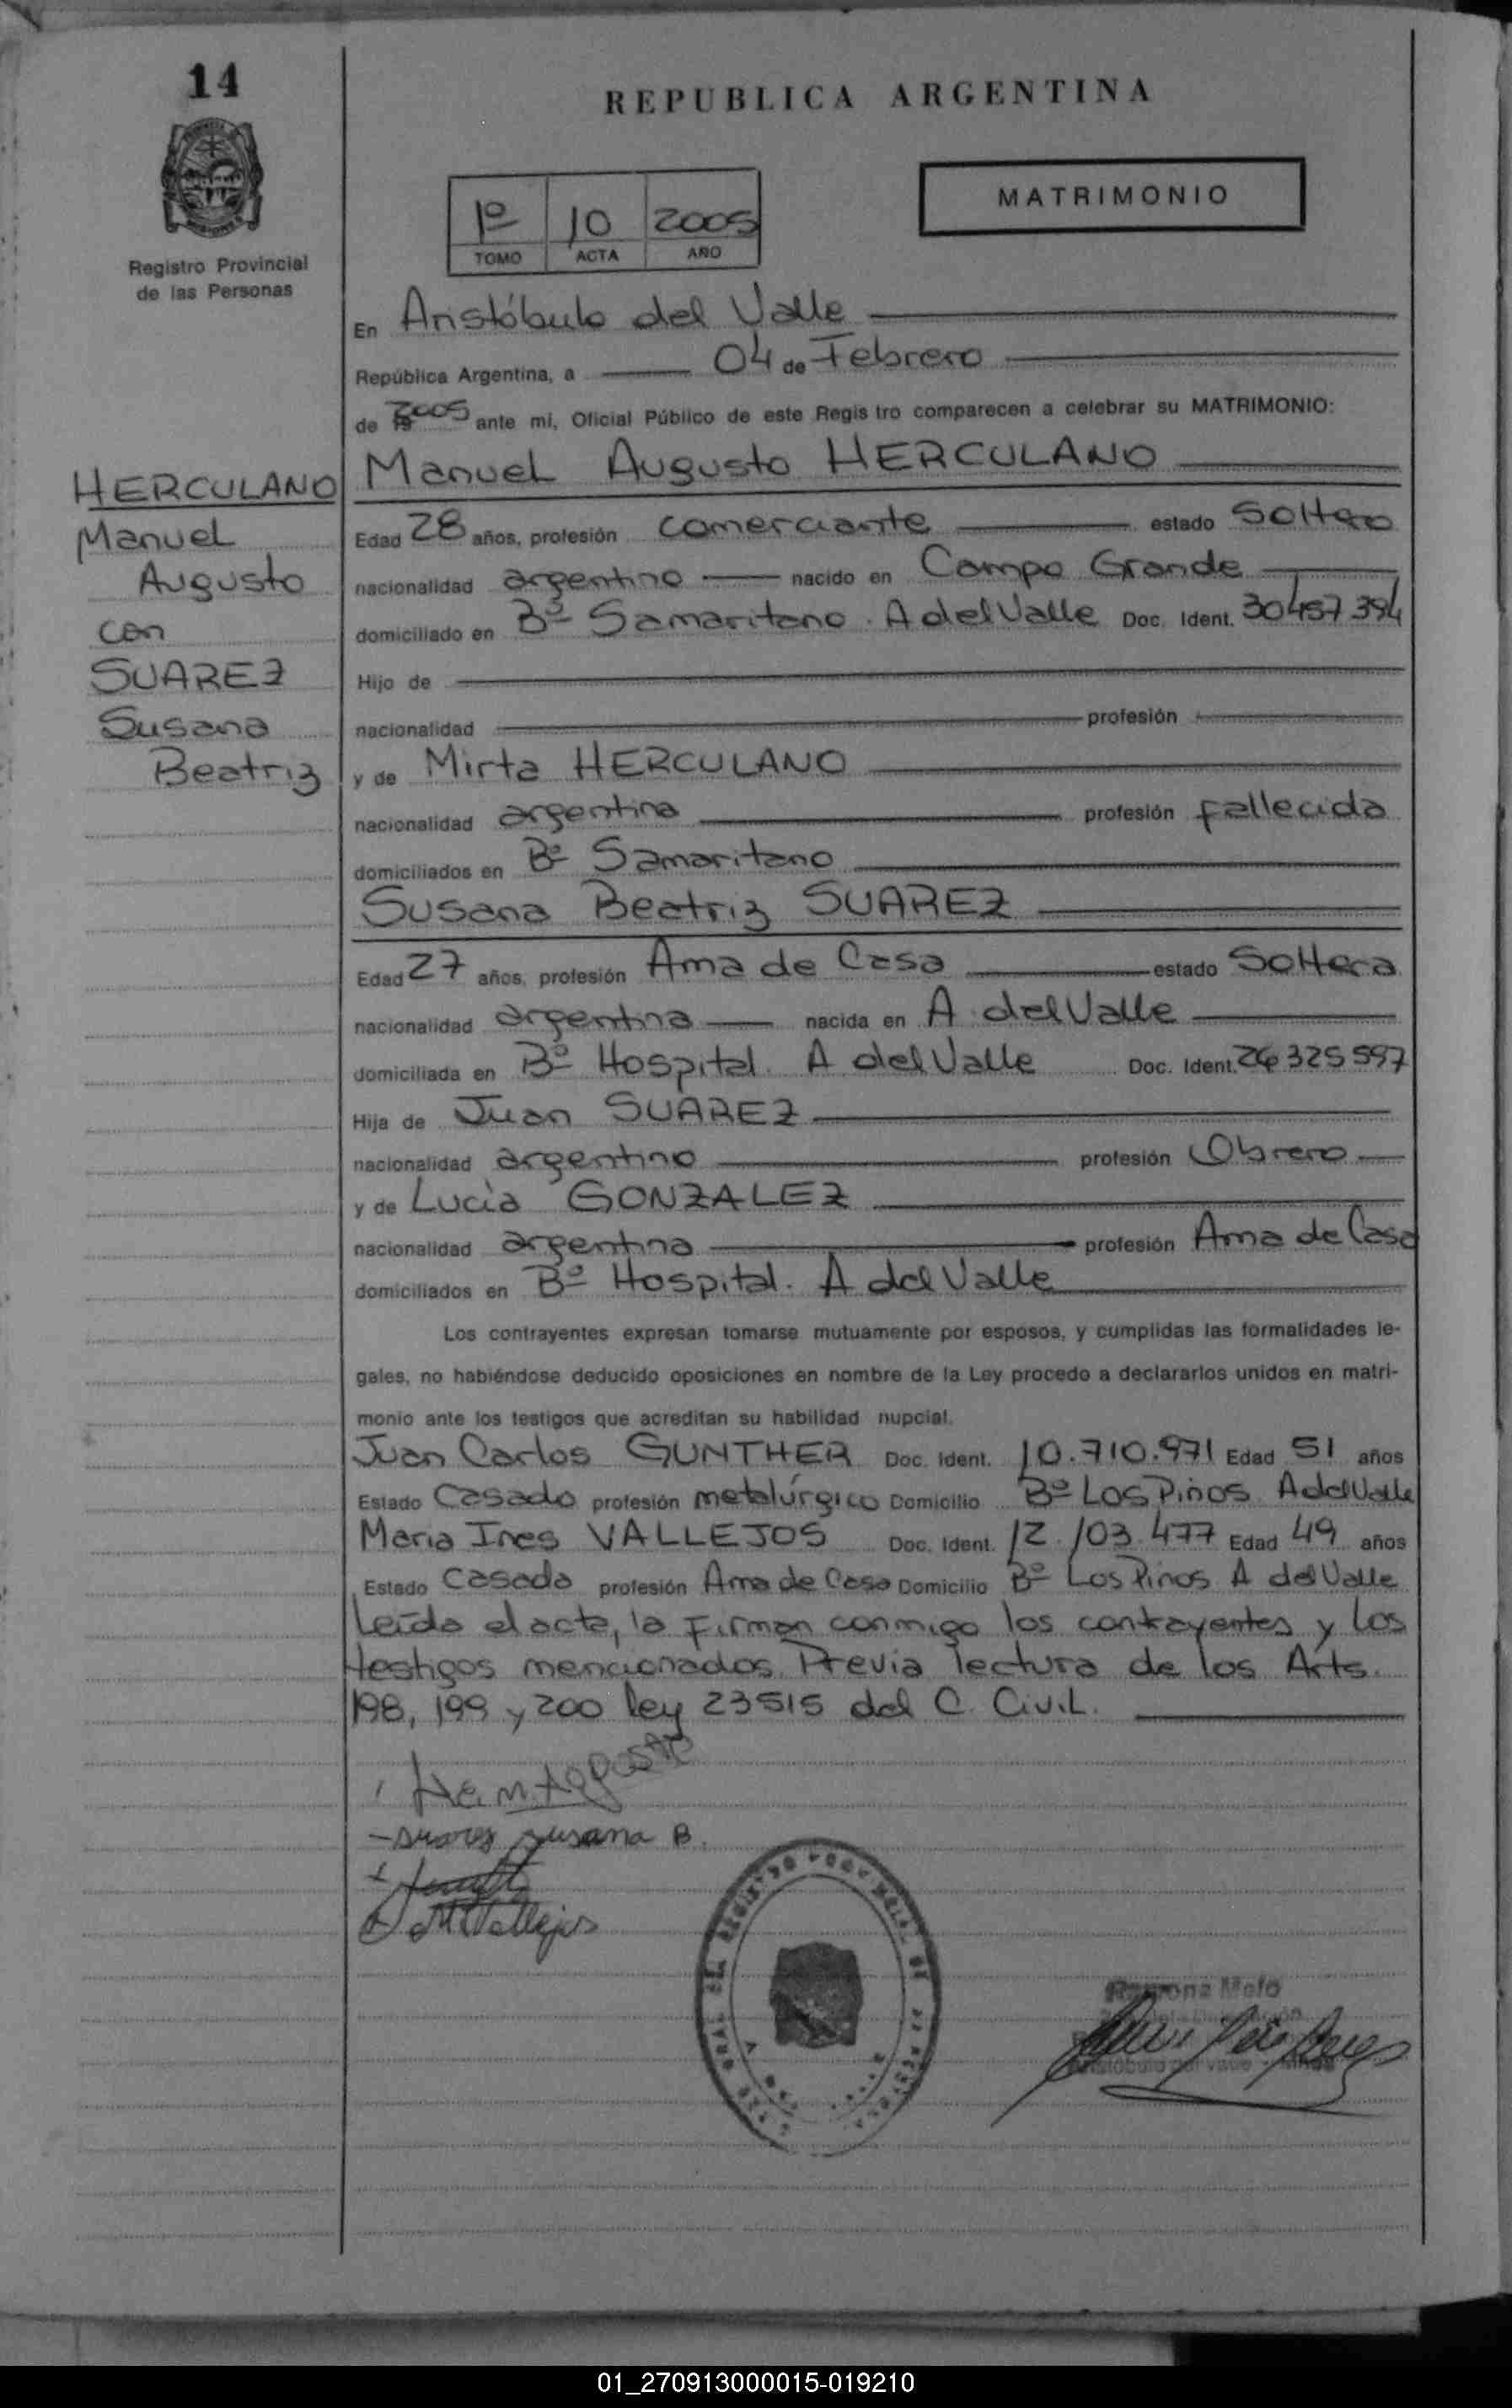 14
REPUBLICA ARGENTINA
MATRIMONIO
1º 10 2005
TOMO ACTA AÑO
Registro Provincial
de las Personas
En Aristóbulo del Valle
República Argentina, a 04 de Febrero
de 2005 ante mi, Oficial Público de este Regis tro comparecen a celebrar su MATRIMONIO:
HERCULANO
Manuel
Augusto
con
SUAREZ
Susana
Beatriz
Manuel Augusto HERCULANO
Edad 28 años, profesión comerciante estado Soltero
nacionalidad argentino nacido en Campo Grande
domiciliado en Bº Samaritano. A del Valle Doc. Ident. 30457394
Hijo de
nacionalidad profesión
y de Mirta HERCULANO
nacionalidad argentina profesión fallecida
domiciliados en Bº Samaritano
Susana Beatriz SUAREZ
Edad 27 años, profesión Ama de Casa estado Soltera
nacionalidad argentina nacida en A del Valle
domiciliada en Bº Hospital. A del Valle Doc. Ident. 26325597
Hija de Juan SUAREZ
nacionalidad argentino profesión Obrero
y de Lucía GONZALEZ
nacionalidad argentina profesión Ama de Casa
domiciliados en Bº Hospital. A del Valle
Los contrayentes expresan tomarse mutuamente por esposos, y cumplidas las formalidades le-
gales, no habiéndose deducido oposiciones en nombre de la Ley procedo a declararlos unidos en matri-
monio ante los testigos que acreditan su habilidad nupcial.
Juan Carlos GUNTHER Doc. Ident. 10.710.971 Edad 51 años
Estado Casado profesión metalúrgico Domicilio Bº Los Pinos A del Valle
Maria Ines VALLEJOS Doc. Ident. 12.103.477 Edad 49 años
Estado Casada profesión Ama de Casa Domicilio Bº Los Pinos A del Valle
Leída el acta, la Firman conmigo los contrayentes y los
testigos mencionados. Previa lectura de los Arts.
198, 199 y 200 ley 23515 del C. Civil.
suarez susana B.
MVallejos
Ramona Melo
01_270913000015-019210